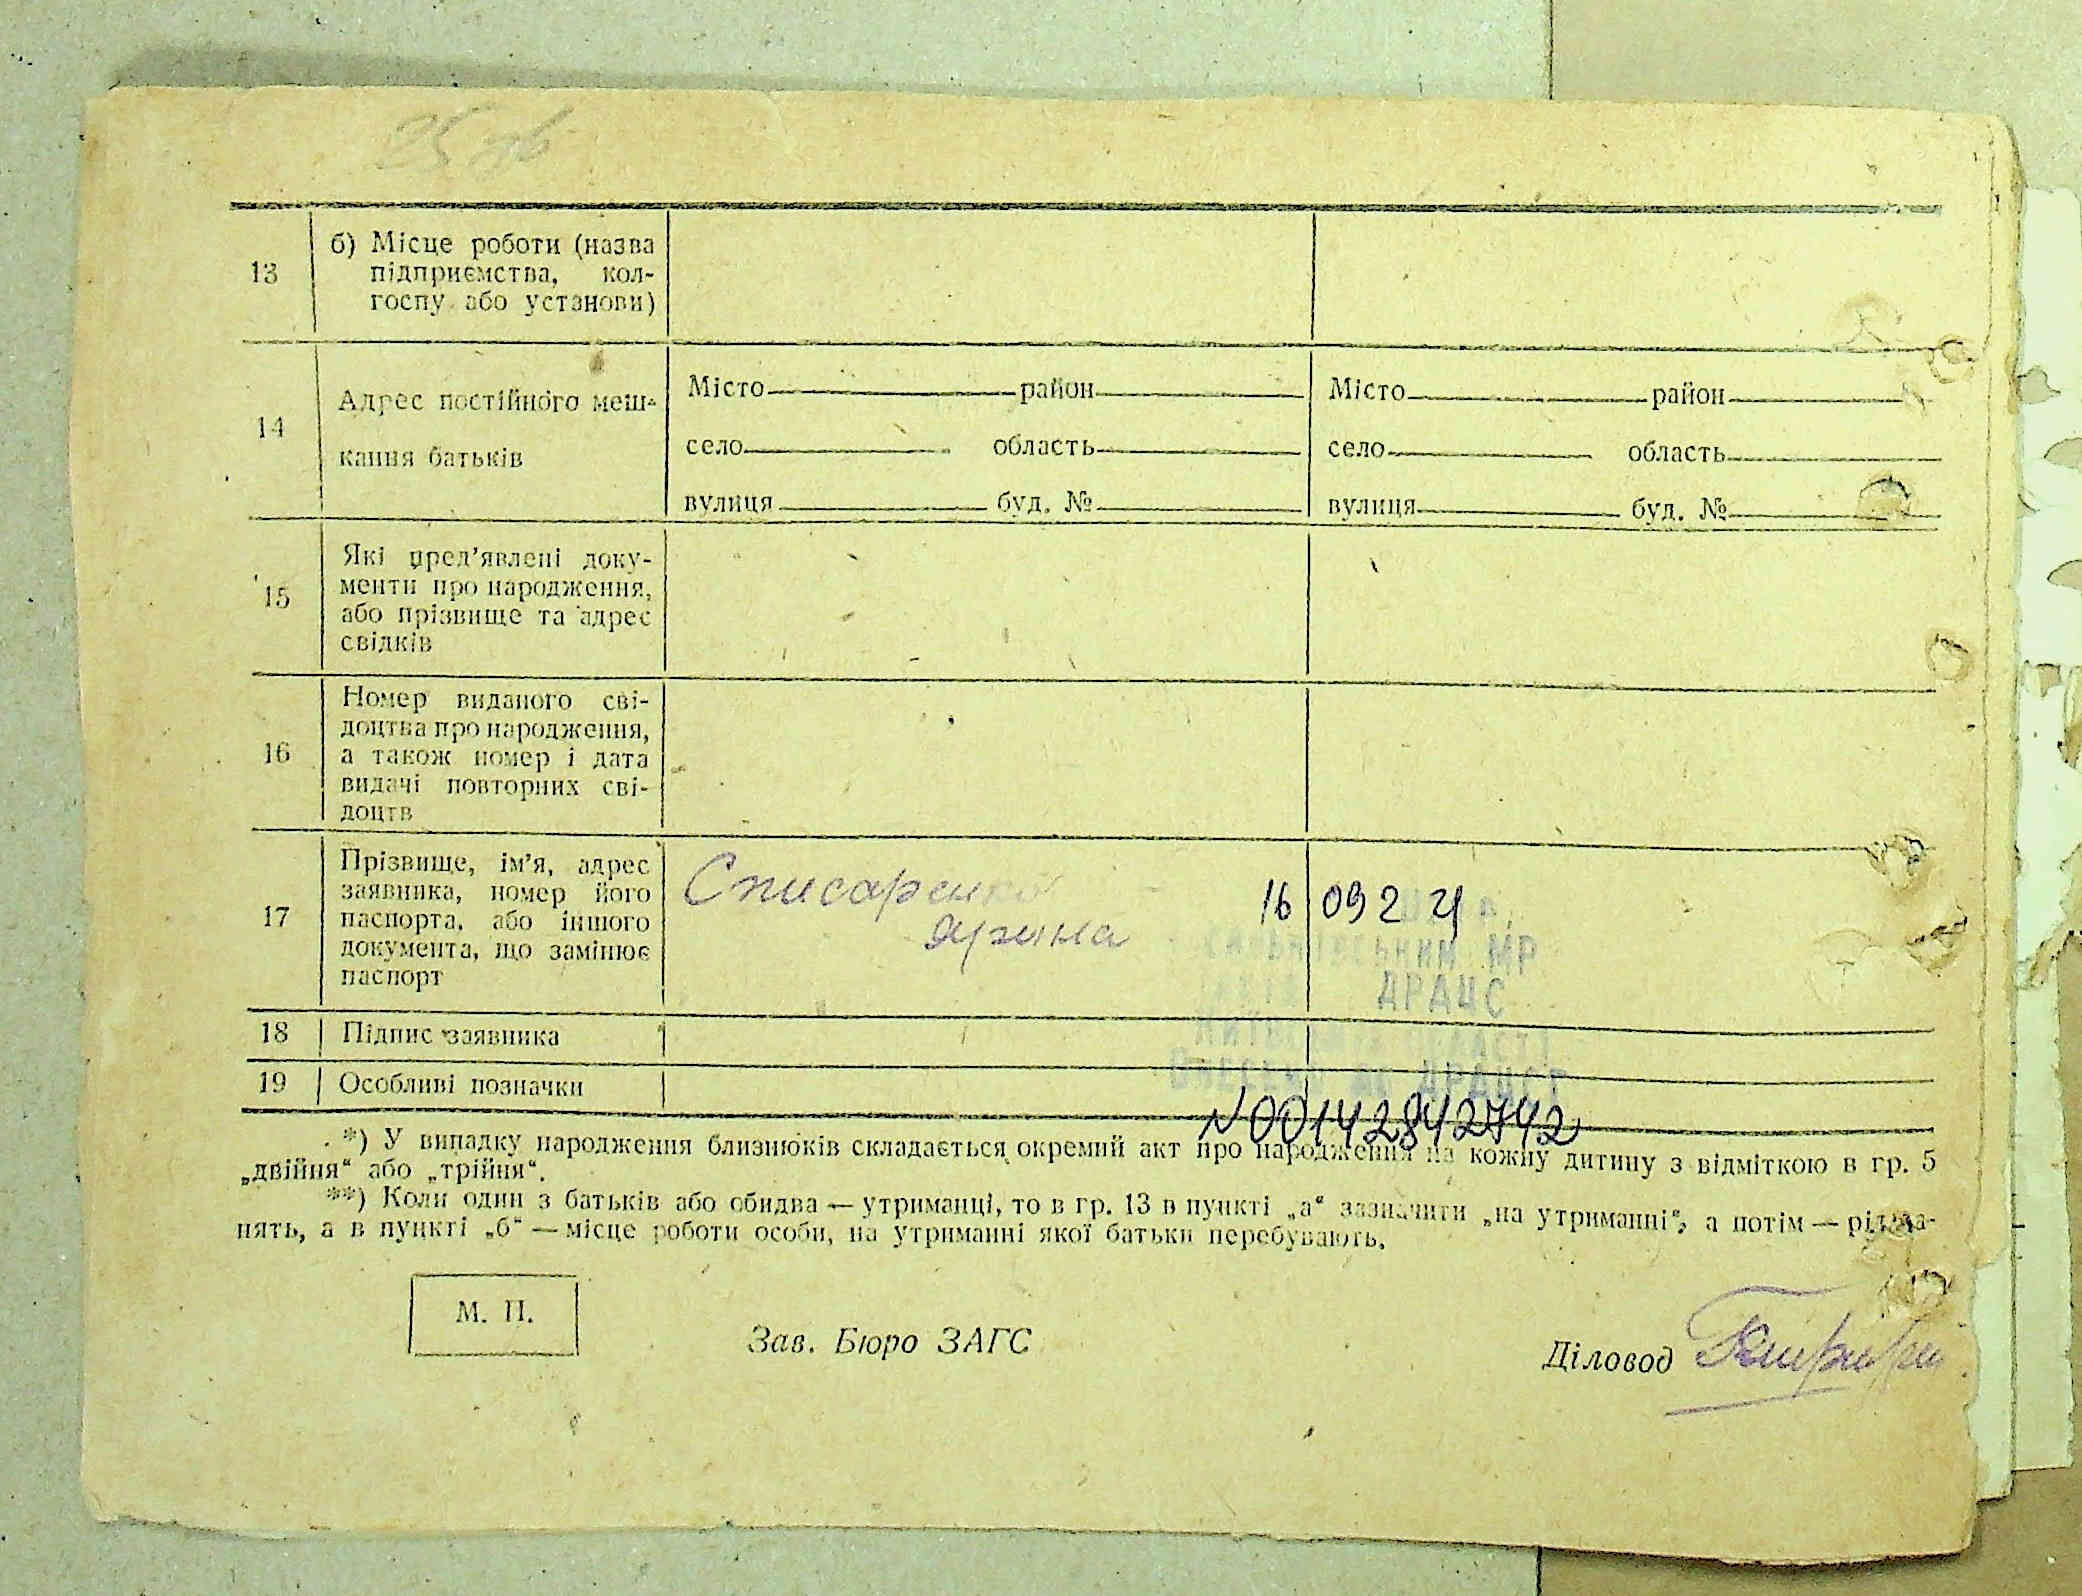 25 зв
13
б) Місце роботи (назва
підприємства, кол-
госпу або установи)
14
Адрес постійного меш-
кання батьків
Місто район
село область
вулиця буд. №
Місто район
село область
вулиця буд. №
15
Які пред’явлені доку-
менти про народження,
або прізвище та адрес
свідків
16
Номер виданого сві-
доцтва про народження,
а також номер і дата
видачі повторних сві-
доцтв
17
Прізвище, ім’я, адрес
заявника, номер його
паспорта, або іншого
документа, що замінює
паспорт
Списаренко
Ярина
16 09 2 4
МР
ДРАЦС
ДРАЦСГ
N00142842742
18 Підпис заявника
19 Особливі позначки
*) У випадку народження близнюків складається окремий акт про народження на кожну дитину з відміткою в гр. 5
„двійня“ або „трійня“.
**) Коли один з батьків або обидва — утриманці, то в гр. 13 в пункті „а“ зазначити „на утриманні“, а потім — рід заня-
нять, а в пункті „б“ — місце роботи особи, на утриманні якої батьки перебувають.
М. П.
Зав. Бюро ЗАГС
Діловод